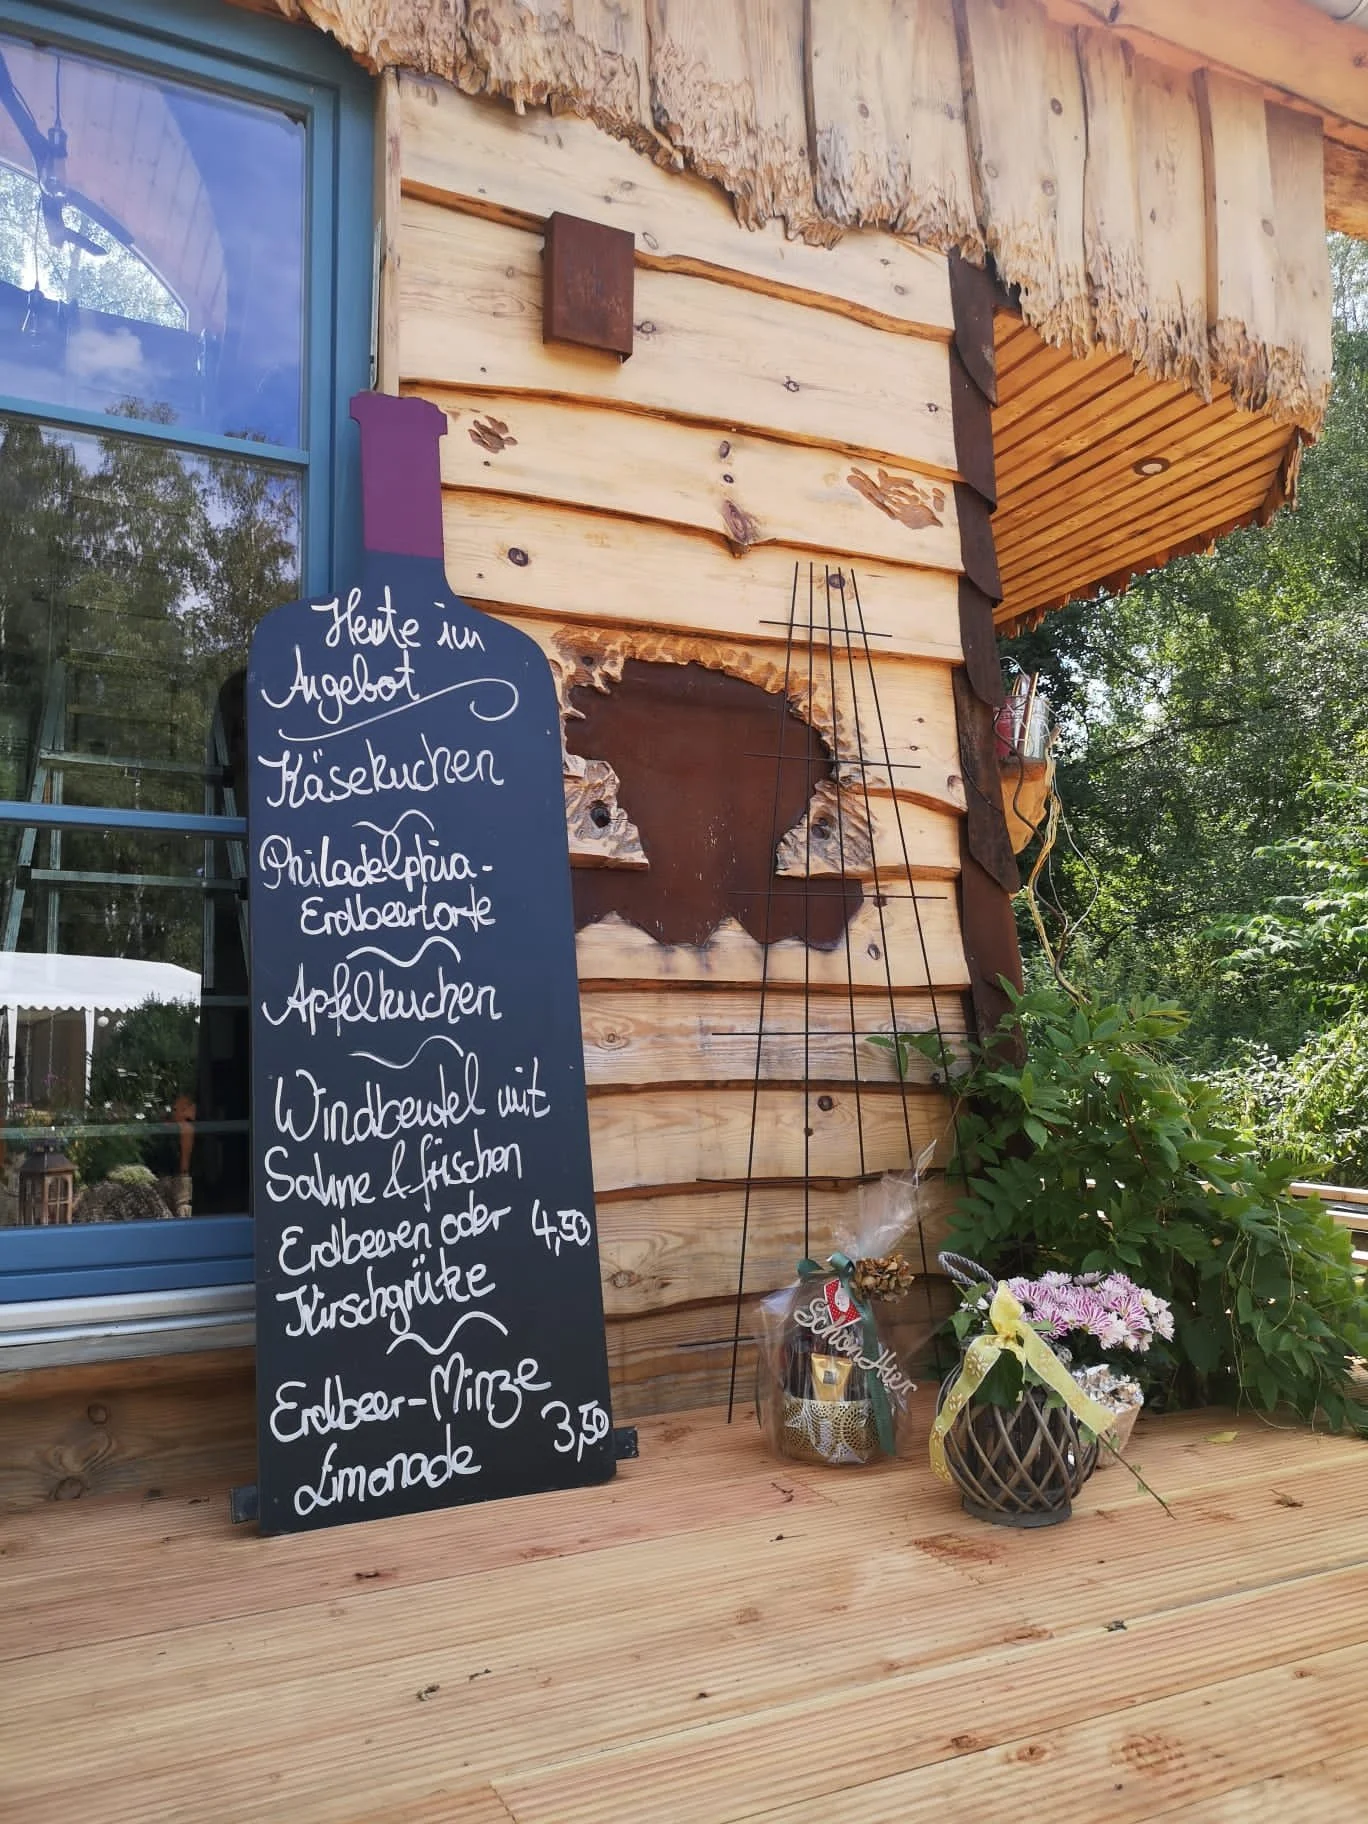 Heute im
Angebot
Käsekuchen
Philadelphia-
Erdbeertorte
Apfelkuchen
Windbeutel mit
Sahne & frischen
Erdbeeren oder 4,50
Kirschgrütze
Erdbeer-Minze
Limonade 3,50
Schön Hier